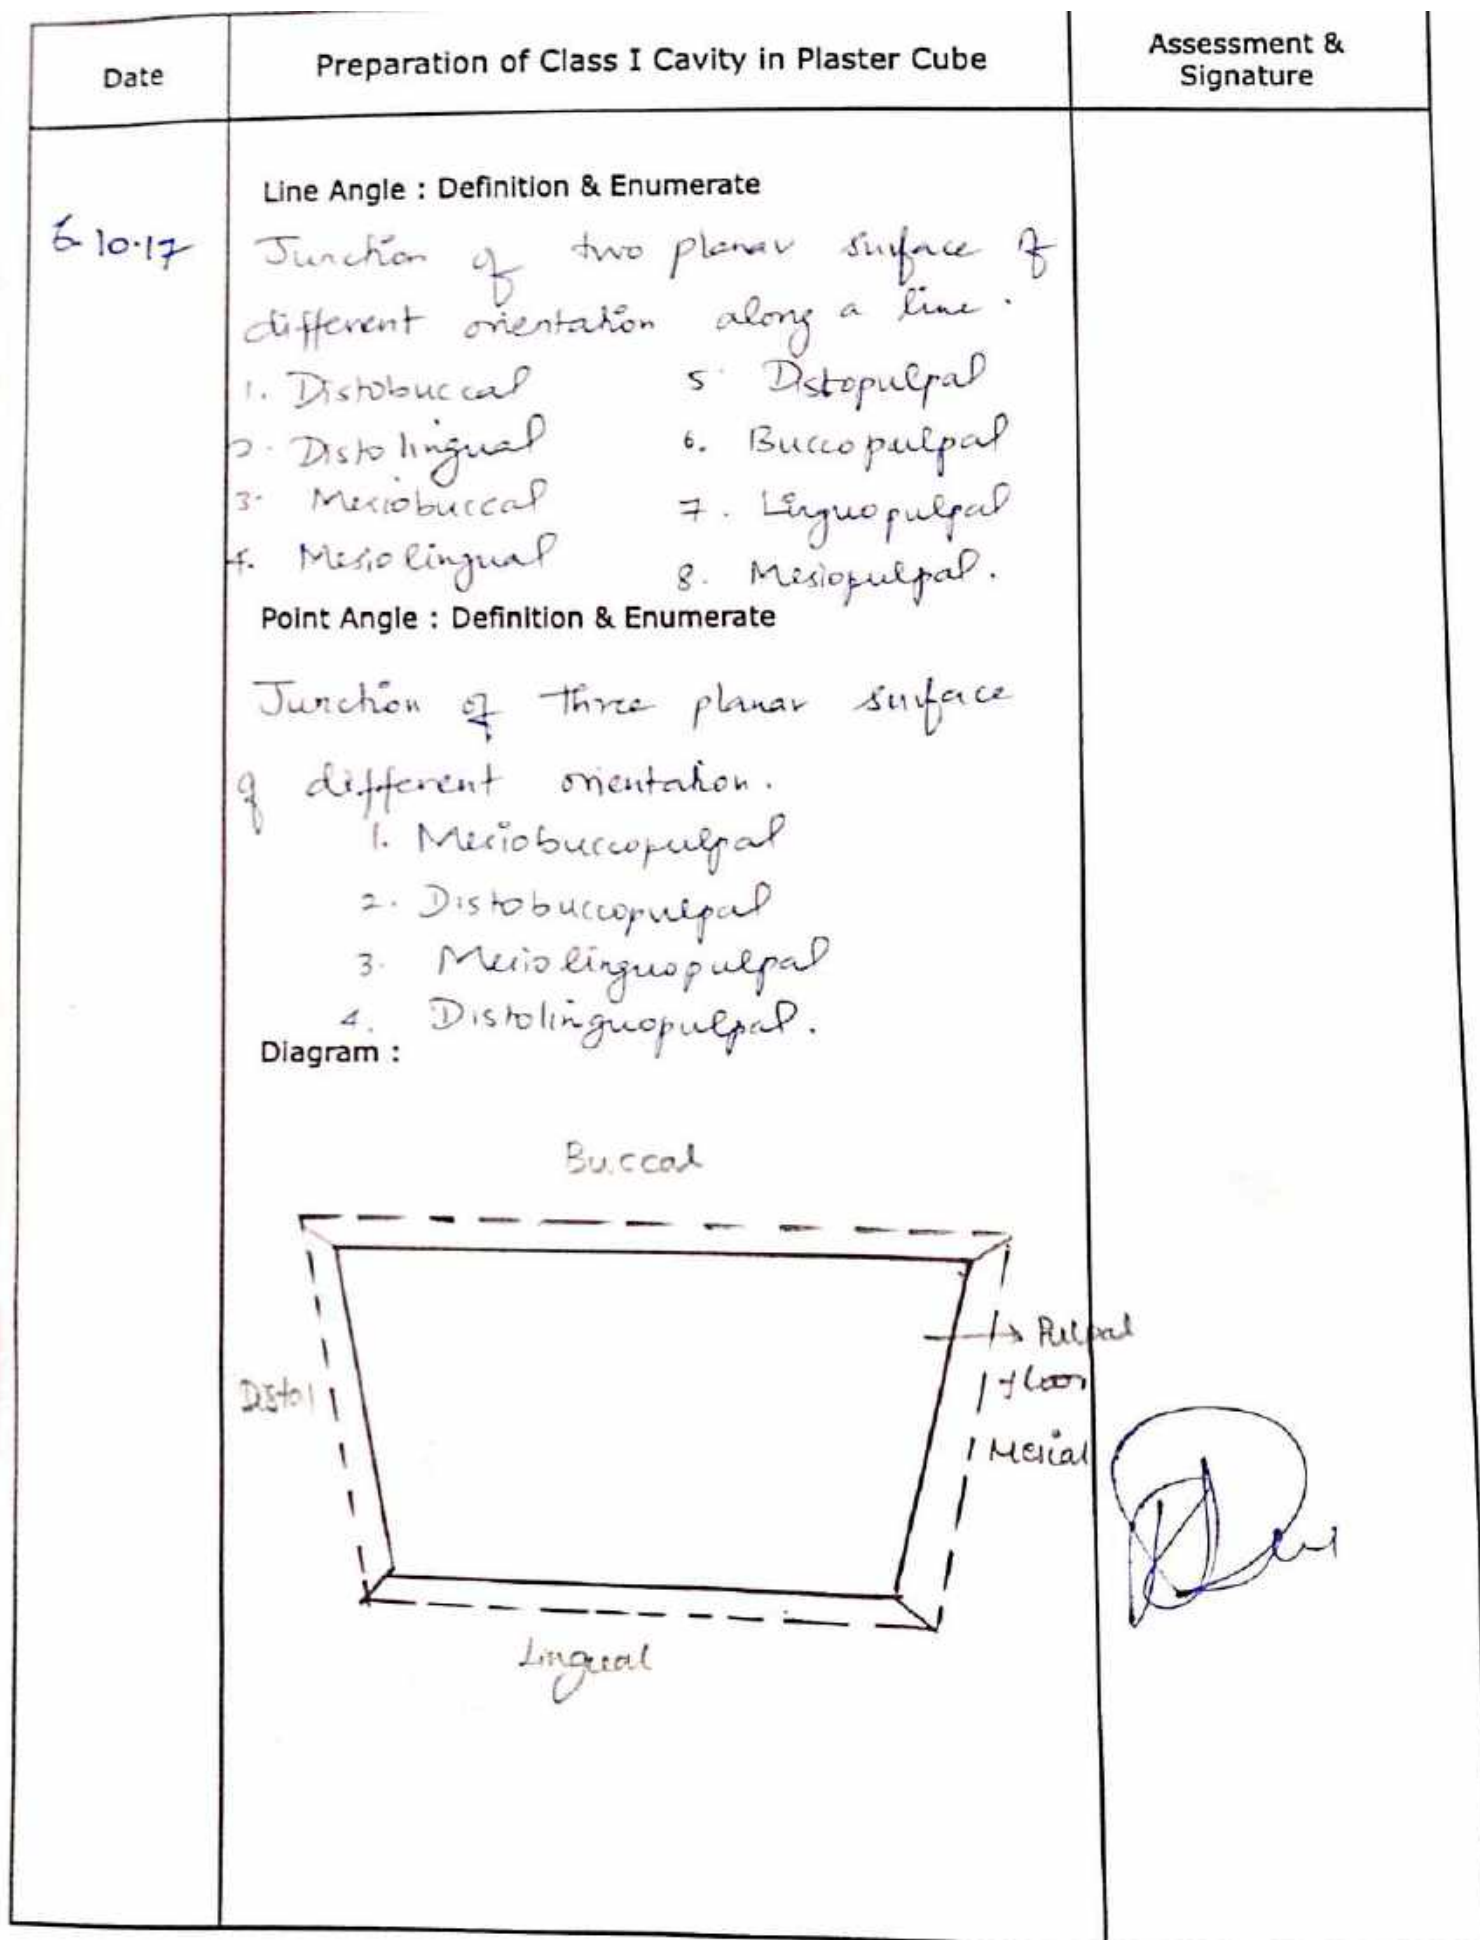 Date
Preparation of Class I Cavity in Plaster Cube
Assessment &
Signature
Line Angle : Definition & Enumerate
6.10.17
Junction of two planar surface of
different orientation along a line.
1. Distobuccal
5. Distopulpal
2. Distolingual
6. Buccopulpal
3. Mesiobuccal
7. Linguopulpal
4. Mesiolingual
8. Mesiopulpal.
Point Angle : Definition & Enumerate
Junction of three planar surface
of different orientation.
1. Mesiobuccopulpal
2. Distobuccopulpal
3. Mesiolinguopulpal
4. Distolinguopulpal.
Diagram :
Buccal
Pulpal
floor
Distal
Mesial
Lingual